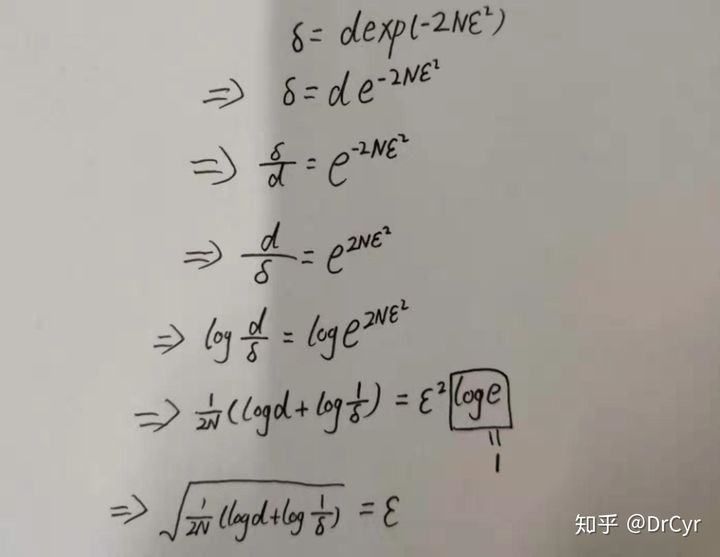 δ = dexp(-2Nε²)
⇒ δ = de^{-2Nε²}
⇒ δ/d = e^{-2Nε²}
⇒ d/δ = e^{2Nε²}
⇒ log d/δ = log e^{2Nε²}
⇒ 1/2N (log d + log 1/δ) = ε² log e
=
1
⇒ √(1/2N (log d + log 1/δ)) = ε
知乎 @DrCyr